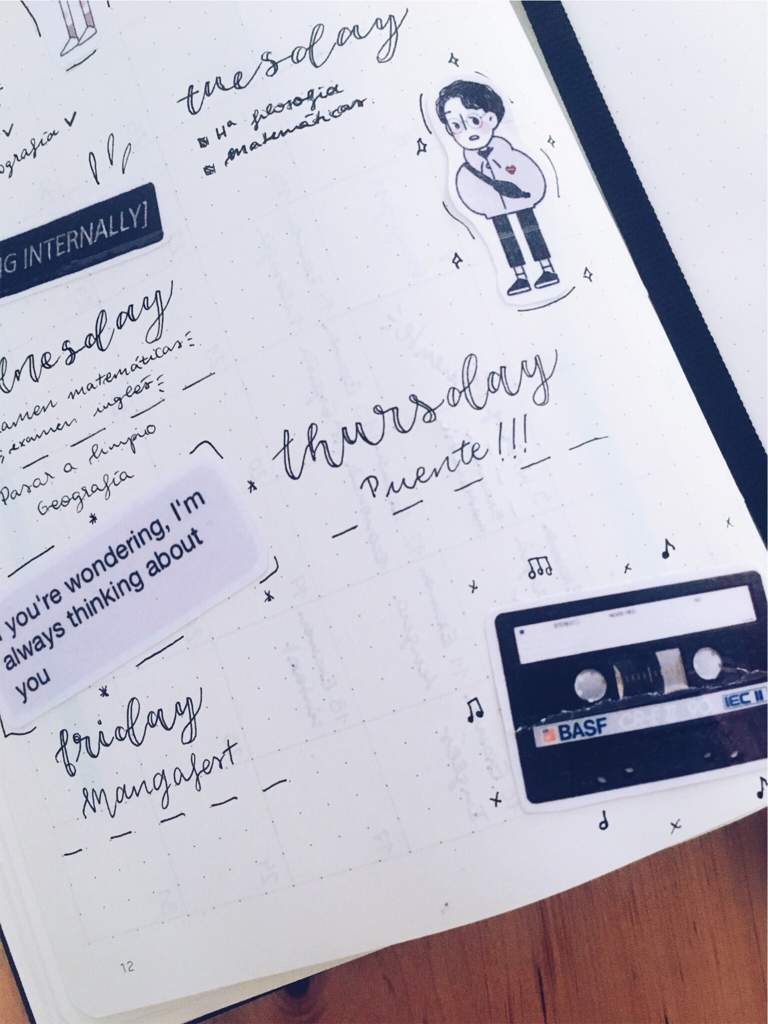 tuesday
Hª filosofia
matemáticas.
ografía
G INTERNALLY]
dnesday
xamen matemáticas
examen inglés
Pasar a limpio
Geografía
thursday
Puente!!!
you're wondering, I'm
always thinking about
you
friday
Mangafest
BASF
IEC II
12